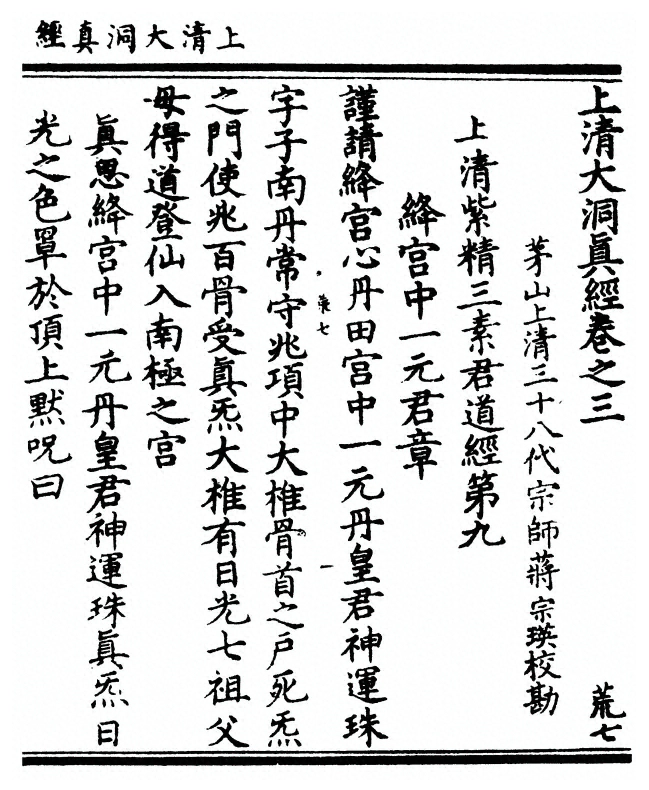 上清大洞真經
上清大洞眞經卷之三
荒七
茅山上清三十八代宗師蔣宗瑛校勘
上清紫精三素君道經第九
絳宫中一元君章
謹請絳宫心丹田宫中一元丹皇君神運珠
字子南丹常守兆項中大椎骨首之戶死炁
之門使兆百骨受眞炁大椎有日光七祖父
母得道登仙入南極之宫
眞思絳宫中一元丹皇君神運珠眞炁日
光之色罩於頂上默呪曰